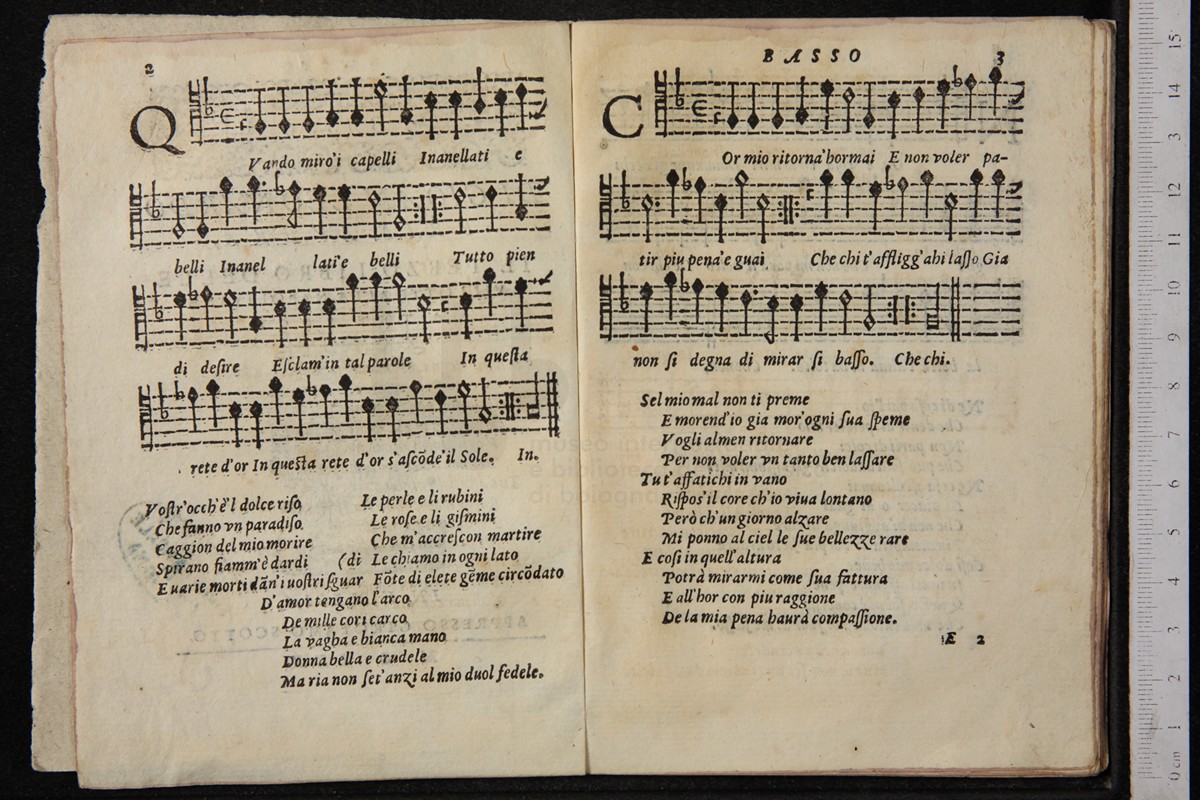 2
Q
Vando miro'i capelli Inanellati e
belli Inanel lati'e belli Tutto pien
di desire Esclam'in tal parole In questa
rete d'or In questa rete d'or s'ascõde'il Sole. In.
Vostr'occh'è'l dolce riso
Che fanno vn paradiso
Caggion del mio morire
Spirano fiamm'è dardi (di
E uarie morti dãn'i uostri sguar
Le perle e li rubini
Le rose e li gismini
Che m'accrescon martire
Le chiamo in ogni lato
Fõte di elete gẽme circõdato
D'amor tengano l'arco
De mille cori carco
La vagha e bianca mano
Donna bella e crudele
Ma ria non set'anzi al mio duol fedele.
BASSO 3
C
Or mio ritorna'hormai E non voler pa-
tir piu pena'e guai Che chi t'affligg'ahi lasso Gia
non si degna di mirar si basso. Che chi.
Sel mio mal non ti preme
E morend'io gia mor'ogni sua speme
Vogli almen ritornare
Per non voler vn tanto ben lassare
Tu t'affatichi in vano
Rispos'il core ch'io viua lontano
Però ch'un giorno alzare
Mi ponno al ciel le sue bellezze rare
E cosi in quell'altura
Potrà mirarmi come sua fattura
E all'hor con piu raggione
De la mia pena haurà compassione.
E 2
museo inte
e bibliote
di bologna
0 cm 1 2 3 4 5 6 7 8 9 10 11 12 13 14 15